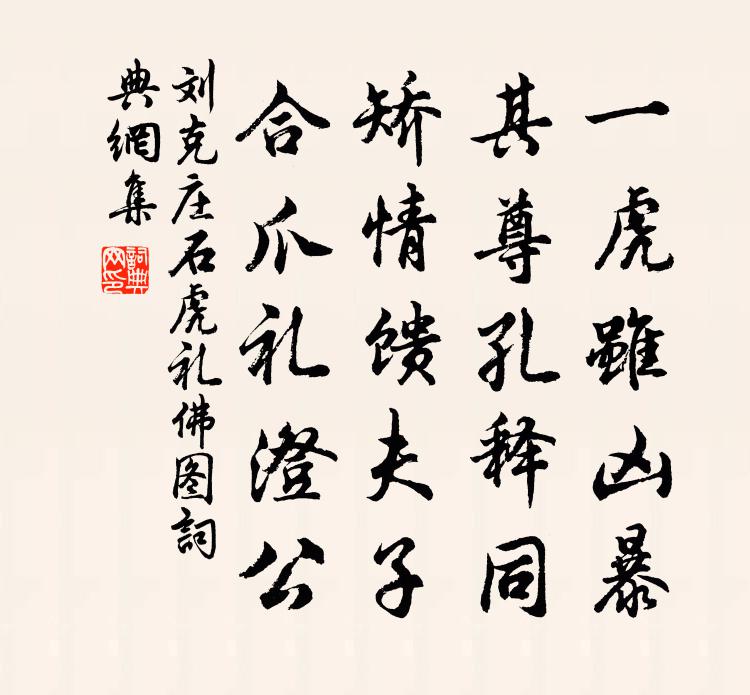 一虎雖凶暴
其尊孔释同
矫情馈夫子
合爪礼澄公
刘克庄石虎礼佛图詞
典網集
詞典
网印